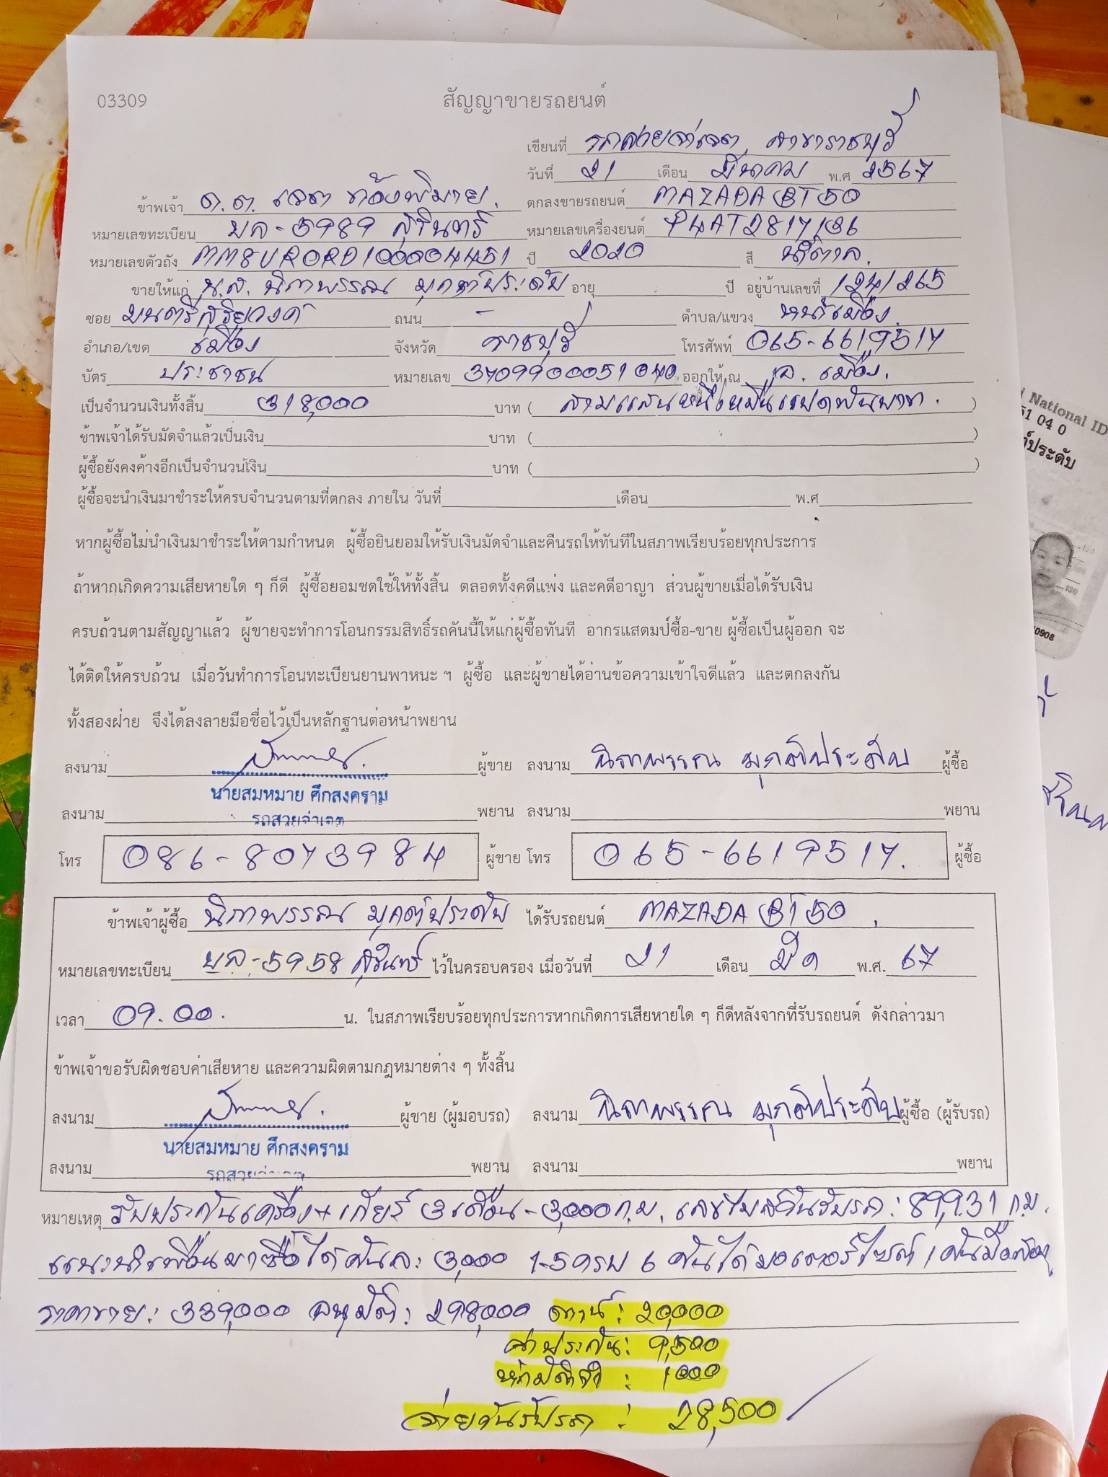 03309
สัญญาขายรถยนต์
เขียนที่ รถสวยจ่าเจต สาขาราชบุรี
วันที่ 21 เดือน มีนาคม พ.ศ 2567
ข้าพเจ้า ด.ต. เจต ตกลงขายรถยนต์ MAZADA BT50
หมายเลขทะเบียน บล-5989 สุรินทร์ หมายเลขเครื่องยนต์ P4AT2817136
หมายเลขตัวถัง MM8UR0RD100004451 ปี 2020 สี น้ำตาล
ขายให้แก่ น.ส. นิภาพรรณ มุกต์ประดับ อายุ ปี อยู่บ้านเลขที่ 124/265
ซอย มนตรีสุริยวงค์ ถนน - ตำบล/แขวง หน้าเมือง
อำเภอ/เขต เมือง จังหวัด ราชบุรี โทรศัพท์ 065-6619517
บัตร ประชาชน หมายเลข 3709900051040 ออกให้ ณ อ. เมือง.
เป็นจำนวนเงินทั้งสิ้น 318,000 บาท ( สามแสนหนึ่งหมื่นแปดพันบาท. )
ข้าพเจ้าได้รับมัดจำแล้วเป็นเงิน บาท ( )
ผู้ซื้อยังคงค้างอีกเป็นจำนวนเงิน บาท ( )
ผู้ซื้อจะนำเงินมาชำระให้ครบจำนวนตามที่ตกลง ภายใน วันที่ เดือน พ.ศ
หากผู้ซื้อไม่นำเงินมาชำระให้ตามกำหนด ผู้ซื้อยินยอมให้รับเงินมัดจำและคืนรถให้ทันทีในสภาพเรียบร้อยทุกประการ
ถ้าหากเกิดความเสียหายใด ๆ ก็ดี ผู้ซื้อยอมชดใช้ให้ทั้งสิ้น ตลอดทั้งคดีแพ่ง และคดีอาญา ส่วนผู้ขายเมื่อได้รับเงิน
ครบถ้วนตามสัญญาแล้ว ผู้ขายจะทำการโอนกรรมสิทธิ์รถคันนี้ให้แก่ผู้ซื้อทันที อากรแสตมป์ซื้อ-ขาย ผู้ซื้อเป็นผู้ออก จะ
ได้ติดให้ครบถ้วน เมื่อวันทำการโอนทะเบียนยานพาหนะ ฯ ผู้ซื้อ และผู้ขายได้อ่านข้อความเข้าใจดีแล้ว และตกลงกัน
ทั้งสองฝ่าย จึงได้ลงลายมือชื่อไว้เป็นหลักฐานต่อหน้าพยาน
ลงนาม ผู้ขาย ลงนาม นิภาพรรณ มุกต์ประดับ ผู้ซื้อ
นายสมหมาย ศึกสงคราม
ลงนาม รถสวยจ่าเจต พยาน ลงนาม พยาน
โทร 086-8073984 ผู้ขาย โทร 065-6619517. ผู้ซื้อ
ข้าพเจ้าผู้ซื้อ นิภาพรรณ มุกต์ประดับ ได้รับรถยนต์ MAZADA BT50
หมายเลขทะเบียน บล-5958 สุรินทร์ ไว้ในครอบครอง เมื่อวันที่ 21 เดือน มีค พ.ศ. 67
เวลา 09.00. น. ในสภาพเรียบร้อยทุกประการหากเกิดการเสียหายใด ๆ ก็ดีหลังจากที่รับรถยนต์ ดังกล่าวมา
ข้าพเจ้าขอรับผิดชอบค่าเสียหาย และความผิดตามกฎหมายต่าง ๆ ทั้งสิ้น
ลงนาม ผู้ขาย (ผู้มอบรถ) ลงนาม นิภาพรรณ มุกต์ประดับ ผู้ซื้อ (ผู้รับรถ)
นายสมหมาย ศึกสงคราม
ลงนาม พยาน ลงนาม พยาน
หมายเหตุ รับประกันเครื่อง+เกียร์ 3 เดือน-3,000 ก.ม. เลขไมล์วันรับรถ: 89,931 ก.ม.
แนะนำเพื่อนมาซื้อได้คันละ 3,000 1-5 ครบ 6 คันได้มอเตอร์ไซต์ 1 คัน
ราคาขาย: 339,000 อนุมัติ: 298,000 ดาวน์: 20,000
ค่าประกัน: 9,500
หักมัดจำ : 1000
จ่ายวันรับรถ : 28,500
National ID
51 04 0
ประดับ